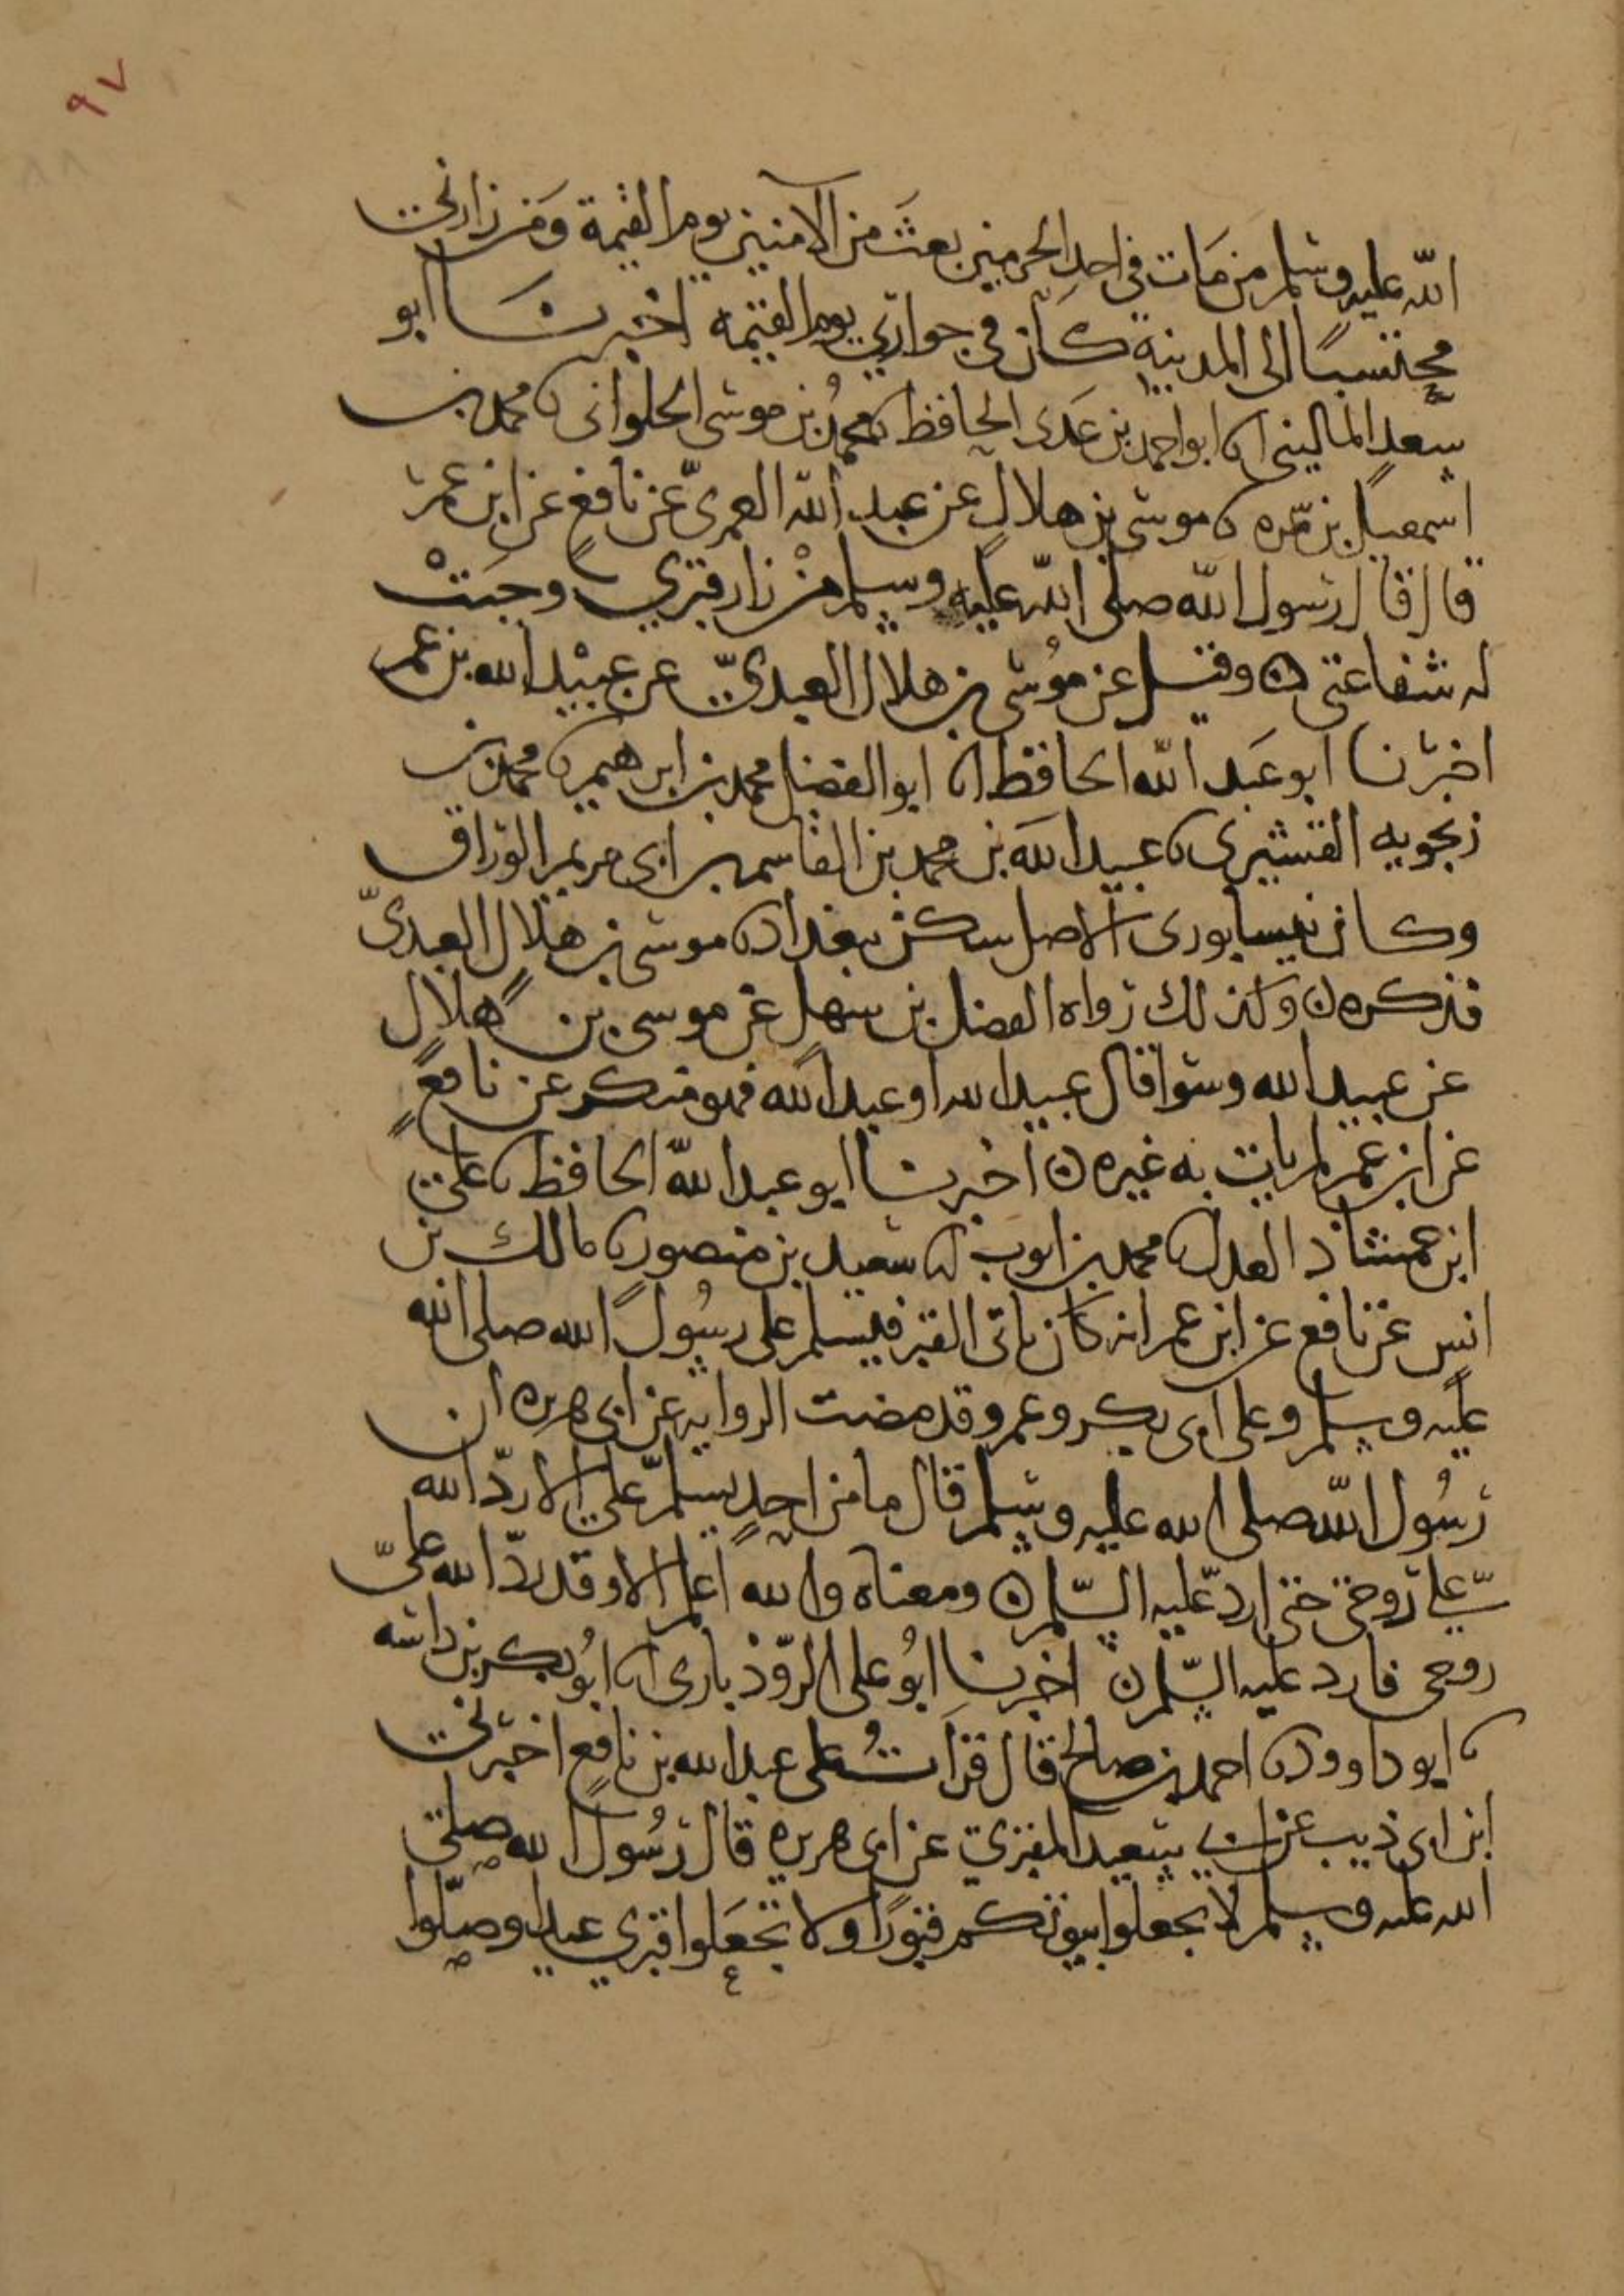 ٩٧
٨٨
الله عليه وسلم من مَات في احدِ الحرمين بعثَ من الآمنين يوم القيمة وَمَن زارني
محتسبًا الى المدينة كانَ في جواري يوم القيمه اخبرنا ابو
سعدٍ الماليني انا ابو احمد بن عَدى الحافظ نا محمدُ بن موسى الحلوانى نا محمد بن
اسمعيل بن سمره نا موسى بن هلالٍ عن عبد الله العمرىّ عن نافعٍ عن ابن عمر
قال قال رسول الله صلى الله عليه وسلم منْ زار قبري وجبَتْ
له شفاعتى ۞ وقيل عن مُوسى بن هلال العبدىّ عن عبيْد الله بن عمر
اخبرنا ابو عَبد الله الحافظ انا ابو الفضل محمد بن ابرهيم نا محمد بن
زنجويه القشيرى نا عبيد الله بن محمد بن القاسم بن ابى مريم الورّاق
وكان نيسابورى الاصل سكن بغداد نا موسى بن هلال العبدىّ
فذكره ن وكذلك رواه الفضل بن سهل عن موسى بن هلال
عن عبيد الله وسوا قال عبيد الله او عبد الله فهو منكر عن نافعٍ
عن ابن عمر لم يات به غيره ن اخبرنا ابو عبد الله الحافظ نا على
ابن حمشاذ العدل نا محمد بن ايوب نا سعيد بن منصور نا مالك بن
انس عن نافع عن ابن عمر انه كان ياتى القبر فيسلم على رسُول الله صلى الله
عليه وسلم وعلى ابى بكر وعمر وقد مضت الروايه عن ابى هريره ان
رسُول الله صلى الله عليه وسلم قال ما من احدٍ يسلمّ على الا ردّ الله
علي روحى حتى اردّ عليه السّلم ن ومعناه والله اعلم الا وقد ردّ الله علىّ
روحى فارد عليه السّلم ن اخبرنا ابُو على الروّذبارى انا ابُو بكر بن داسه
نا ابو داوود نا احمد بن صالح قال قرَاتُ على عبد الله بن نافعٍ اخبرنى
ابن ابى ذيب عن سعيد المقبري عن ابى هريره قال رسُول الله صلى
الله عليه وسلم لا تجعلوا بيوتكم قبورًا ولا تجعَلوا قبري عيدا وصلّوا